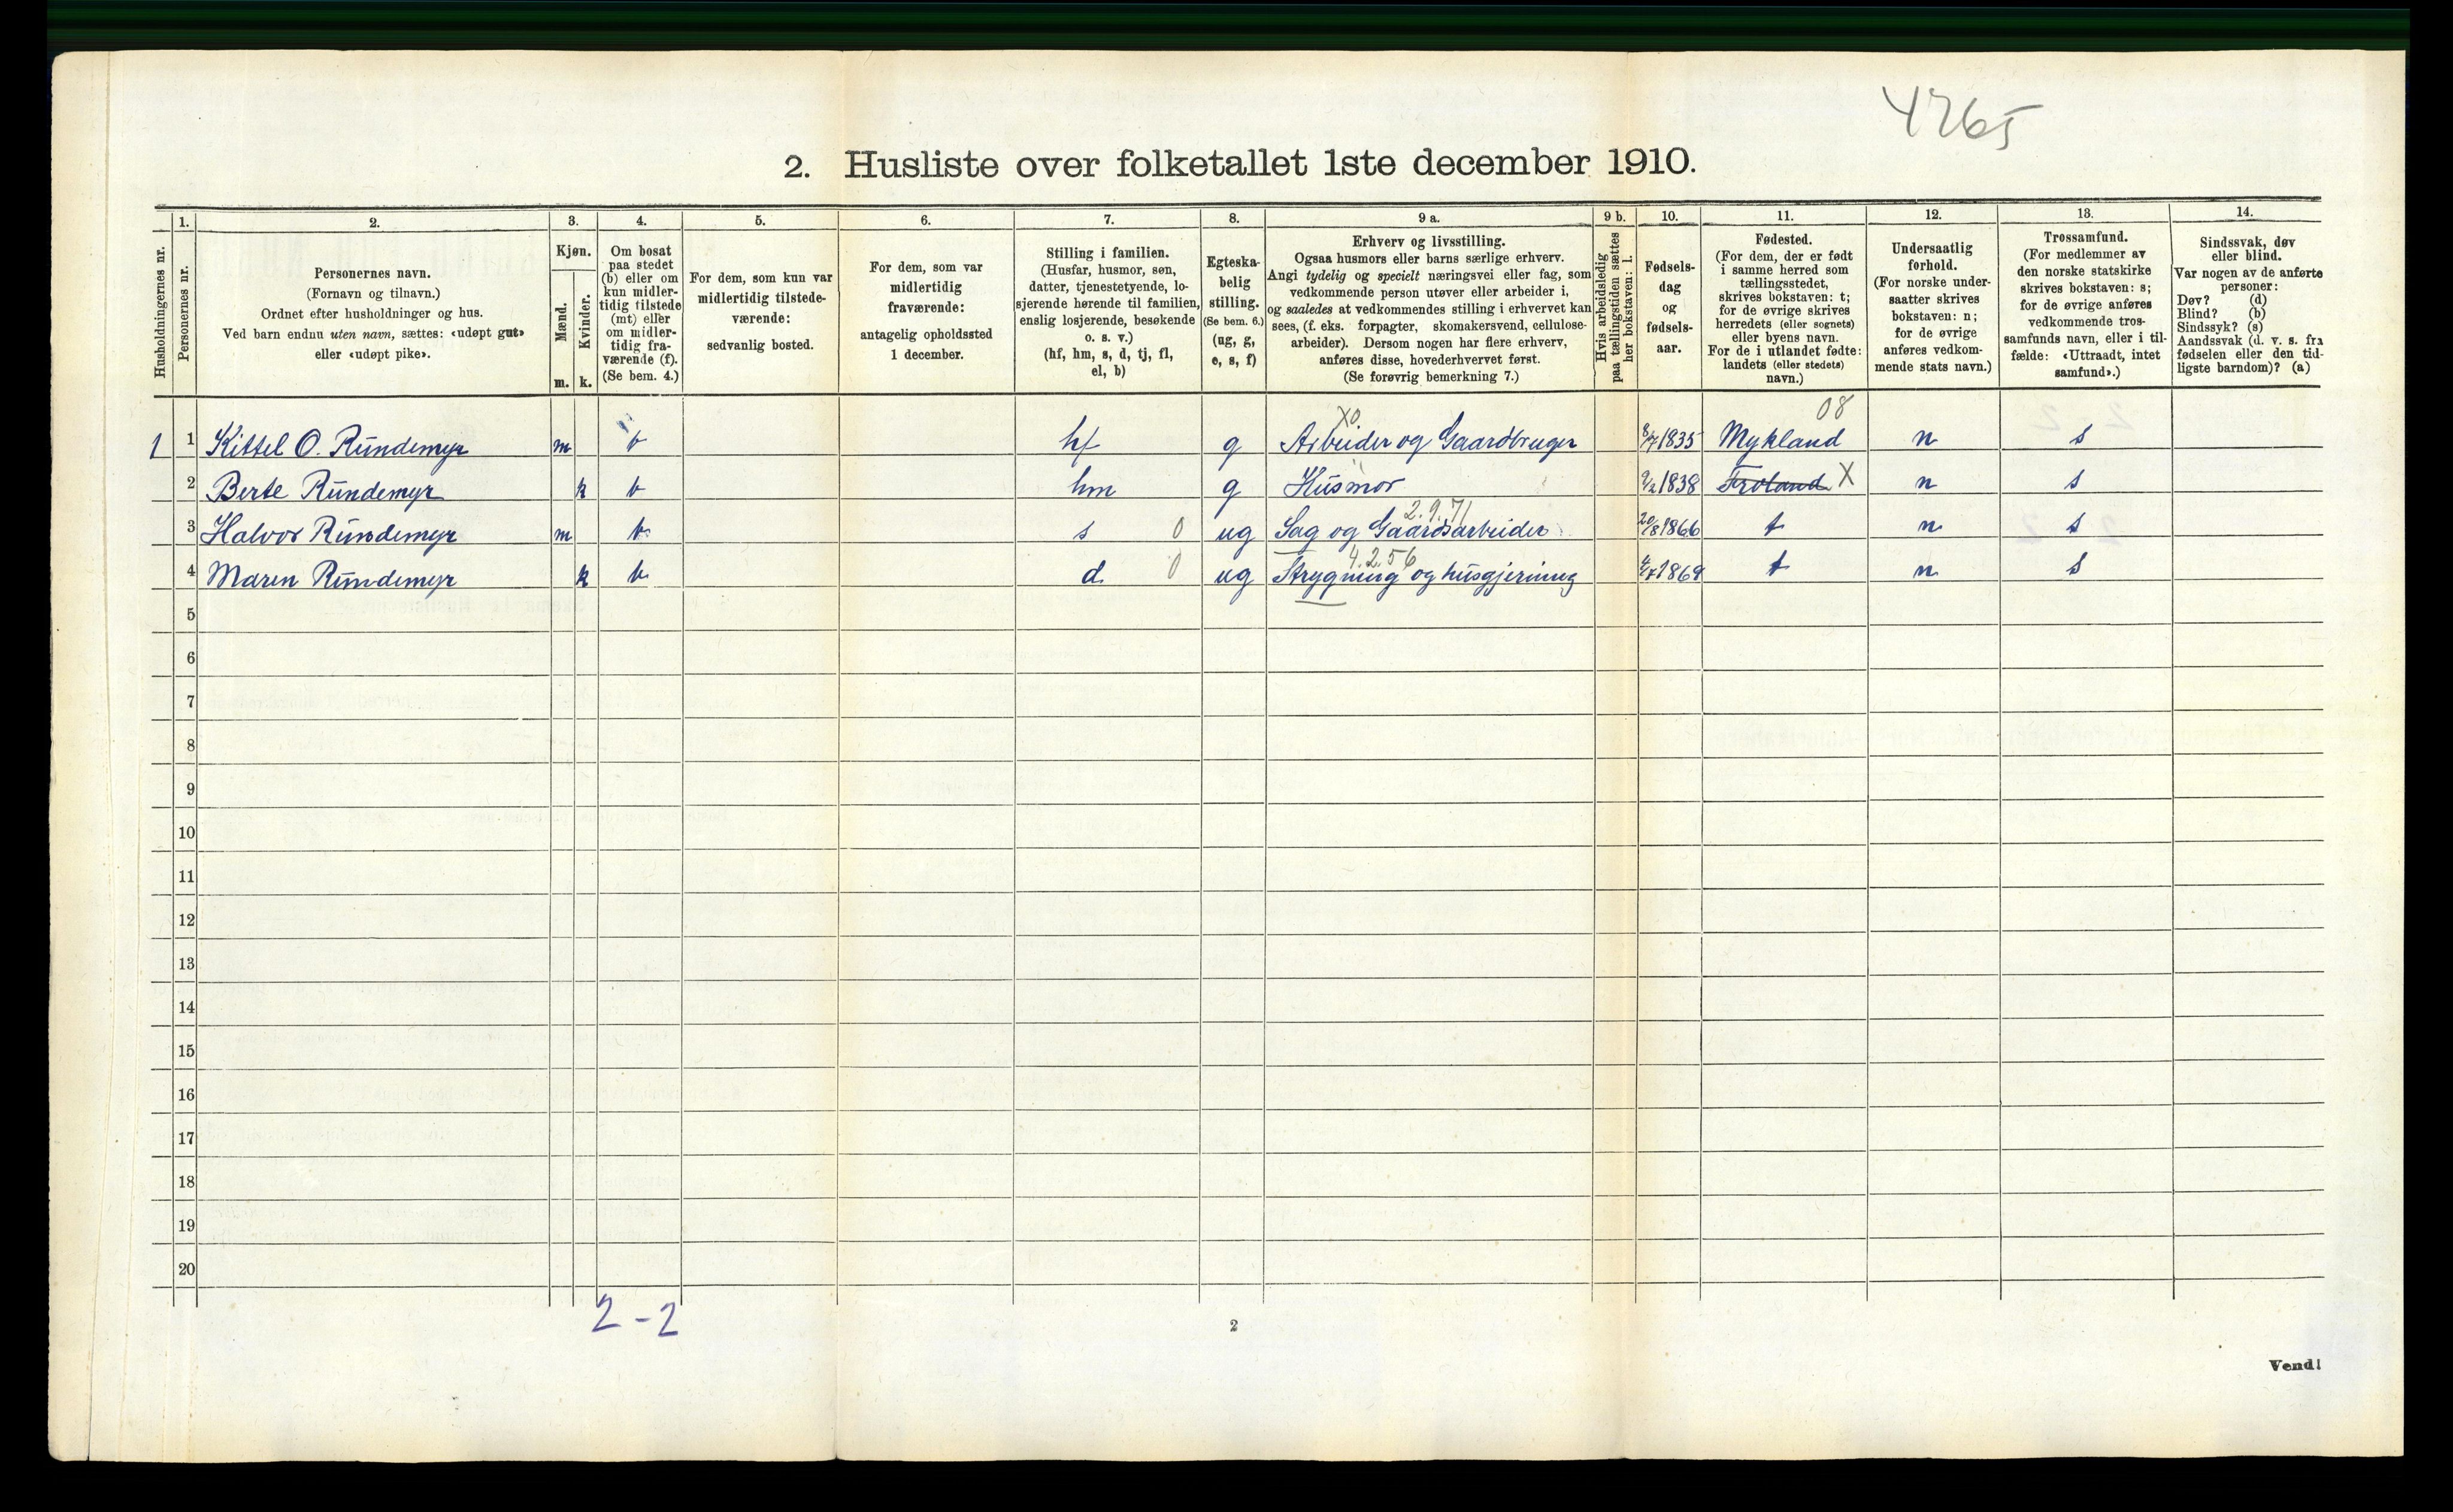 4765
2. Husliste over folketallet 1ste december 1910.
Husholdningernes nr.
1.
Personernes nr.
2.
Personernes navn.
(Fornavn og tilnavn.)
Ordnet efter husholdninger og hus.
Ved barn endnu uten navn, sættes: «udøpt gut»
eller «udøpt pike».
3.
Kjøn.
Mænd.
Kvinder.
m. k.
4.
Om bosat
paa stedet
(b) eller om
kun midler-
tidig tilstede
(mt) eller
om midler-
tidig fra-
værende (f).
(Se bem. 4.)
5.
For dem, som kun var
midlertidig tilstede-
værende:
sedvanlig bosted.
6.
For dem, som var
midlertidig
fraværende:
antagelig opholdssted
1 december.
7.
Stilling i familien.
(Husfar, husmor, søn,
datter, tjenestetyende, lo-
sjerende hørende til familien,
enslig losjerende, besøkende
o. s. v.)
(hf, hm, s, d, tj, fl,
el, b)
8.
Egteska-
belig
stilling.
(Se bem. 6.)
(ug, g,
e, s, f)
9 a.
Erhverv og livsstilling.
Ogsaa husmors eller barns særlige erhverv.
Angi tydelig og specielt næringsvei eller fag, som
vedkommende person utøver eller arbeider i,
og saaledes at vedkommendes stilling i erhvervet kan
sees, (f. eks. forpagter, skomakersvend, cellulose-
arbeider). Dersom nogen har flere erhverv,
anføres disse, hovederhvervet først.
(Se forøvrig bemerkning 7.)
9 b.
Hvis arbeidsledig
paa tællingstiden sættes
her bokstaven: l.
10.
Fødsels-
dag
og
fødsels-
aar.
11.
Fødested.
(For dem, der er født
i samme herred som
tællingsstedet,
skrives bokstaven: t;
for de øvrige skrives
herredets (eller sognets)
eller byens navn.
For de i utlandet fødte:
landets (eller stedets)
navn.)
12.
Undersaatlig
forhold.
(For norske under-
saatter skrives
bokstaven: n;
for de øvrige
anføres vedkom-
mende stats navn.)
13.
Trossamfund.
(For medlemmer av
den norske statskirke
skrives bokstaven: s;
for de øvrige anføres
vedkommende tros-
samfunds navn, eller i til-
fælde: «Uttraadt, intet
samfund».)
14.
Sindssvak, døv
eller blind.
Var nogen av de anførte
personer:
Døv? (d)
Blind? (b)
Sindssyk? (s)
Aandssvak (d. v. s. fra
fødselen eller den tid-
ligste barndom)? (a)
X0 08
1 1 Kittel O. Rundemyr m b hf g Arbeider og Gaardbruger 8/7 1835 Mykland n s
2 Berte Rundemyr k b hm g Husmor 2/2 1838 Froland X n s
2.9.71
3 Halvor Rundemyr m b s 0 ug Sag og Gaardsarbeider 20/8 1866 t n s
4.2.56
4 Maren Rundemyr k b d 0 ug Strygning og husgjerning 4/7 1869 t n s
5
6
7
8
9
10
11
12
13
14
15
16
17
18
19
20
2 - 2
2
Vend!